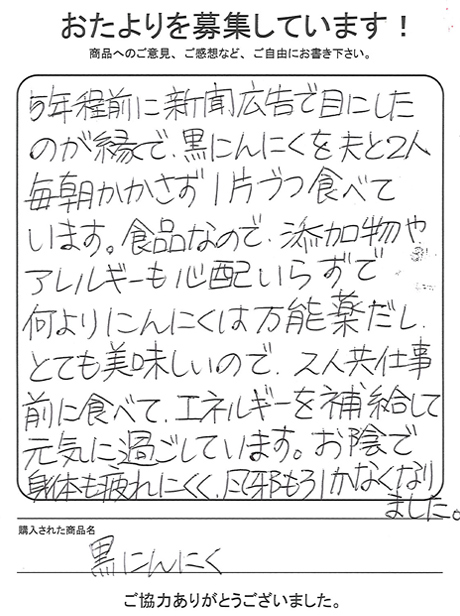 おたよりを募集しています！
商品へのご意見、ご感想など、ご自由にお書き下さい。
5年程前に新聞広告で目にした
のが縁で、黒にんにくを夫と2人
毎朝かかさず1片づつ食べて
います。食品なので、添加物や
アレルギーも心配いらずで
何よりにんにくは万能薬だし、
とても美味しいので、2人共仕事
前に食べて、エネルギーを補給して
元気に過ごしています。お陰で
身体も疲れにくく、風邪もひかなくなり
ました。
購入された商品名
黒にんにく
ご協力ありがとうございました。